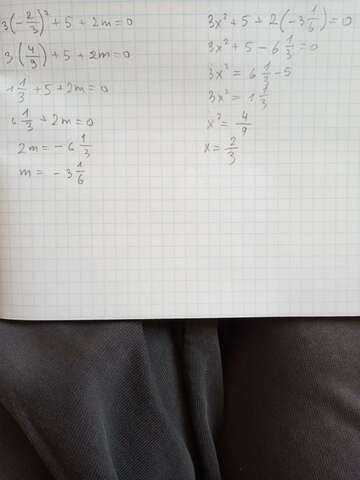 3(-2/3)² + 5 + 2m = 0
3(4/9) + 5 + 2m = 0
1 1/3 + 5 + 2m = 0
6 1/3 + 2m = 0
2m = -6 1/3
m = -3 1/6
3x² + 5 + 2(-3 1/6) = 0
3x² + 5 - 6 1/3 = 0
3x² = 6 1/3 - 5
3x² = 1 1/3
x² = 4/9
x = 2/3